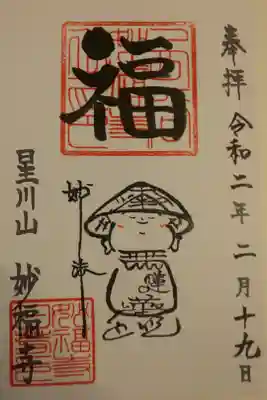 奉拝 令和二年 二月十九日
福
妙法
星川山 妙福寺